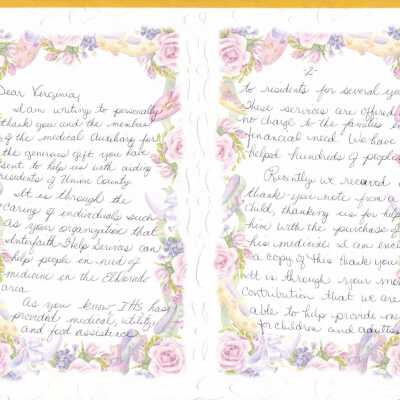 Dear Virginia,
I am writing to personally
thank you and the members
of the medical Auxiliary for
the generous gift you have
sent to help us with aiding
residents of Union County.
It is through the
caring of individuals such
as your organization that
Interfaith Help Services can
help people in need of
medicine in the Eldorado
area.
As you know IHS has
provided medical, utility,
and food assistance
-2-
to residents for several ye
These services are offered
no charge to the families
financial need. We have
helped hundreds of people
Recently we received
thank you note from a
child, thanking us for help
him with the purchase of
his medicine. I am
a copy of this thank you
It is through your
contribution that we are
able to help provide
for children and adults